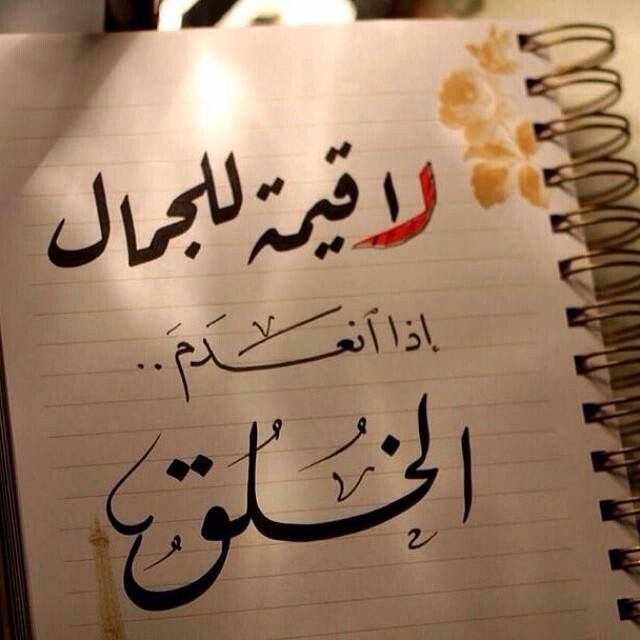 لا قيمة للجمال
إذا أنعـدَمَ ..
الخُلُقُ